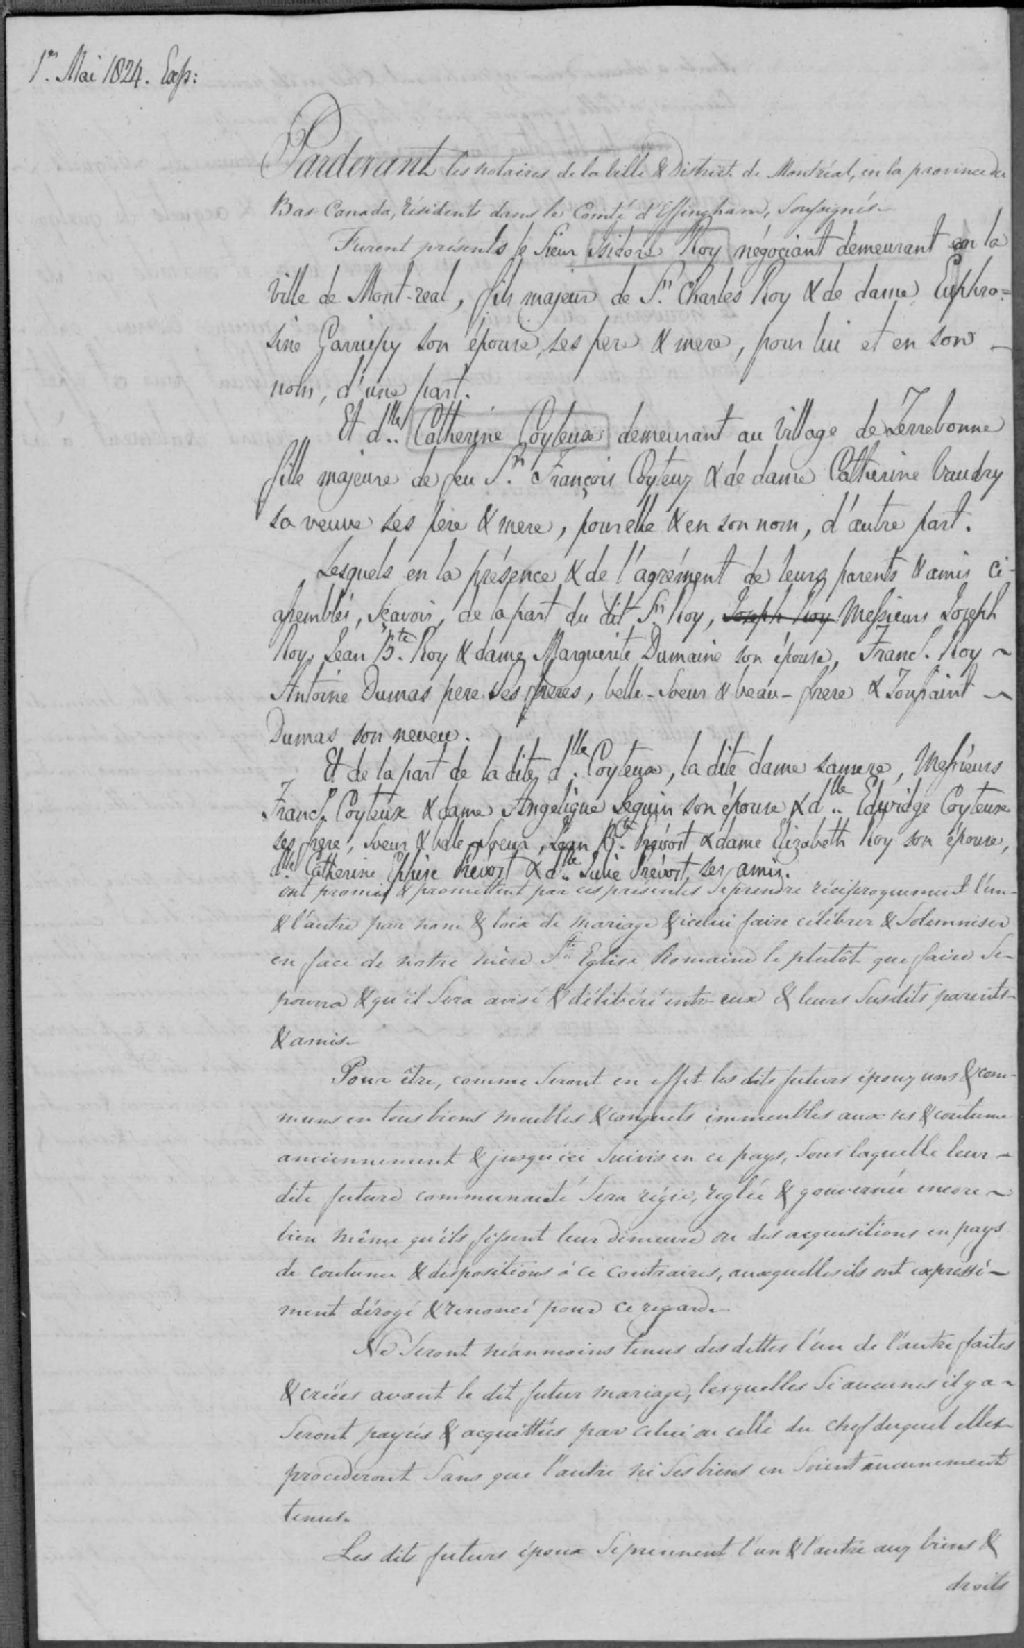 1er. Mai 1824. Exp:
Pardevant les notaires de la ville & District de Montréal, en la province du
Bas Canada, résidents dans le Comté d'Effingham, Soussignés
Furent présents le Sieur Isidore Roy négociant demeurant en la
ville de Mont-real, fils majeur de Sr. Charles Roy & de dame Euphro-
sine Gariepy son épouse, ses pere & mere, pour lui et en son
nom, d'une part.
Et dlle. Catherine Coyteux demeurant au village de Terrebonne
fille majeure de feu Sr. François Coyteux & de dame Catherine Vaudry
sa veuve ses père & mere, pour elle & en son nom, d'autre part.
Lesquels en la présence & de l'agrément de leurs parents & amis ci-
assemblés, scavoir, de la part du dit Sr. Roy, Joseph Roy Messieurs Joseph
Roy, Jean Bte. Roy & dame Marguerite Dumaine son épouse, Francs. Roy
Antoine Dumas pere ses freres, belle-soeur & beau-frère & Toussaint
Dumas son neveu.
Et de la part de la dite dlle. Coyteux, la dite dame sa mère, Messieurs
Francs. Coyteux & dame Angelique Seguin son épouse & dlle. Edwidge Coyteux
ses frere, soeur & belle-soeur, Jean Bte. Prévost & dame Elizabeth Roy son épouse,
dlle. Catherine Prévost & dlle. Julie Prévost, ses amis.
ont promis & promettent par ces présentes se prendre réciproquement l'un
& l'autre par nom & loix de mariage & icelui faire célébrer & solemniser
en face de notre mère Ste. Eglise Romaine le plutôt que faire se
pourra & qu'il sera avisé & délibéré entre eux & leurs susdits parents
& amis
Pour être, comme seront en effet les dits futurs époux uns & com-
muns en tous biens meubles & conquets immeubles aux us & coutume
anciennement & jusqu'ici suivis en ce pays, sous laquelle leur
dite future communauté sera régie, reglée & gouvernée encore
bien même qu'ils fissent leur demeure ou des acquisitions en pays
de coutumes & dispositions à ce contraires, auxquelles ils ont expressé-
ment dérogé & renoncé pour ce regard
Ne seront néanmoins tenus des dettes l'un de l'autre faites
& créées avant le dit futur mariage, lesquelles si aucunes il y a
seront payées & acquittées par celui ou celle du chef duquel elles
procederont sans que l'autre ni ses biens en soient aucunement
tenus
Les dits futurs époux se prennent l'un & l'autre aux biens &
droits